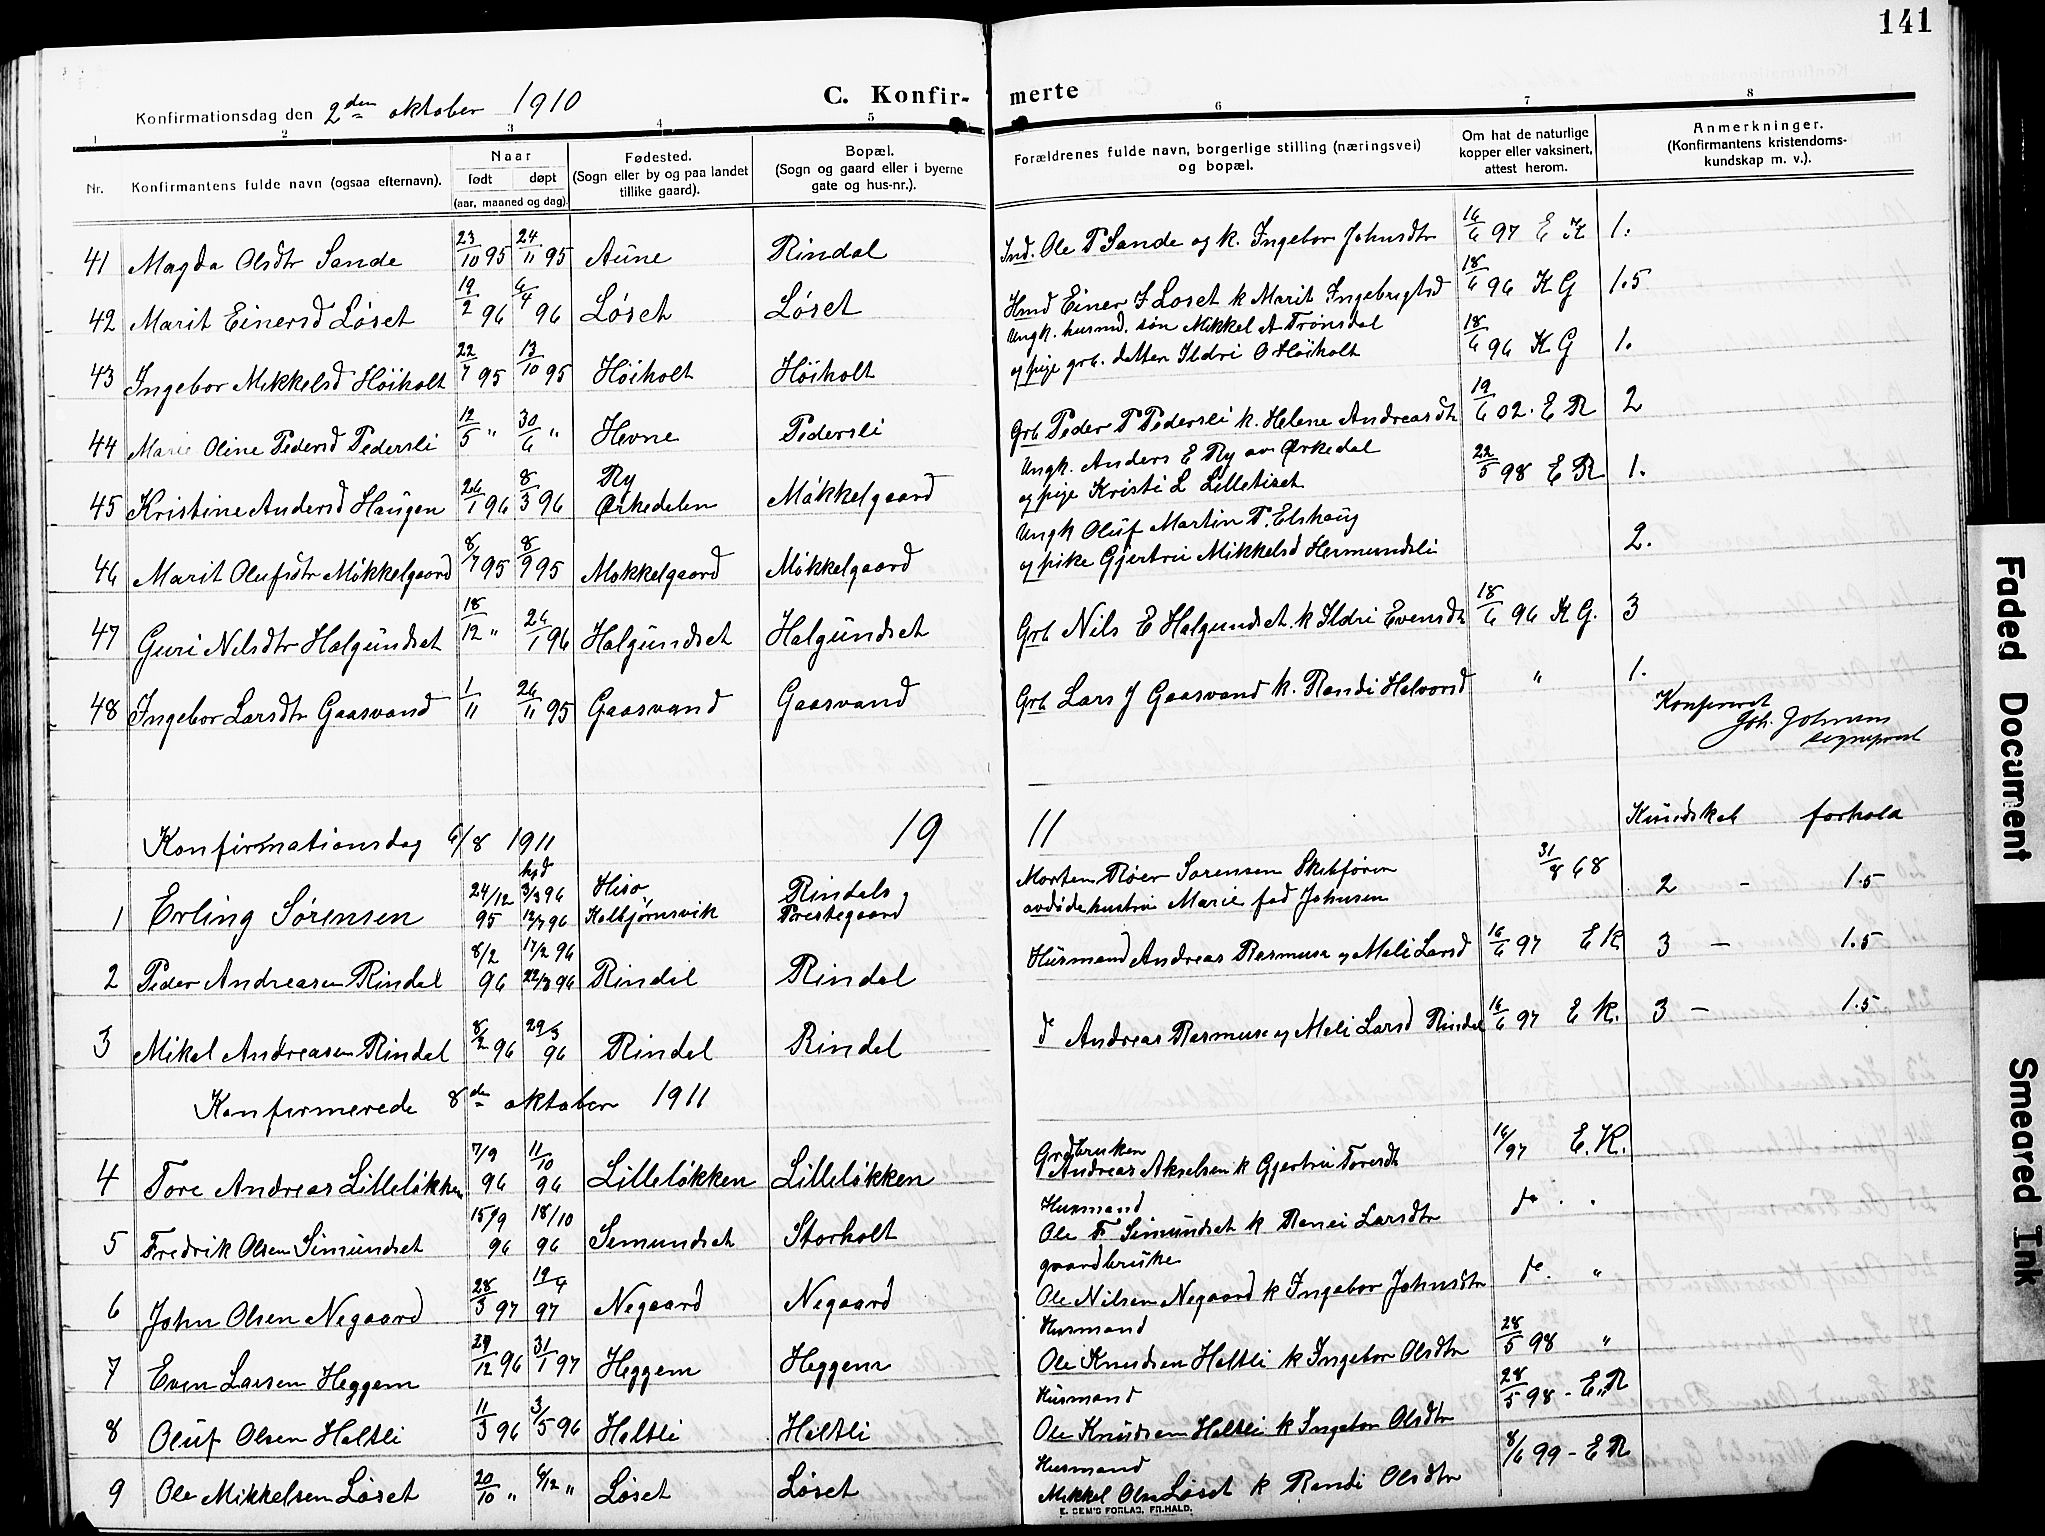 141
Konfirmationsdag den 2den oktober 1910
C. Konfir-
merte
1 2 3 4 5 6 7 8
Nr.
Konfirmantens fulde navn (ogsaa efternavn).
Naar
født
døpt
(aar, maaned og dag).
Fødested.
(Sogn eller by og paa landet
tillike gaard).
Bopæl.
(Sogn og gaard eller i byerne
gate og hus-nr.).
Forældrenes fulde navn, borgerlige stilling (næringsvei)
og bopæl.
Om hat de naturlige
kopper eller vaksinert,
attest herom.
Anmerkninger.
(Konfirmantens kristendoms-
kundskap m. v.).
41 Magda Olsdtr Sande 23/10 95 24/11 95 Aune Rindal Ind. Ole P Sande og k. Ingebor Johnsdtr 16/6 97 E K 1.
42 Marit Einersd Løset 19/2 96 6/4 96 Løset Løset Hmd Einer I Løset k Marit Ingebrigtsd 18/6 96 K G 1.5
43 Ingebor Mikkelsd Höiholt 22/7 95 13/10 95 Höiholt Höiholt Ungk. husmd. søn Mikkel A Trønsdal
og pige grb. datter Ildri O Höiholt 18/6 96 K G 1.
44 Marie Oline Pedersd Pedersli 12/5 " 30/6 " Hevne Pedersli Grb Peder P Pedersli k. Helene Andreasdtr 19/6 02. E R 2
45 Kristine Andersd Haugen 26/1 96 8/3 96 Ry
Ørkedalen Møkkelgaard Ungk. Anders E Ry av Ørkedal
og pige Kristi L Lilletiset 22/5 98 E R 1.
46 Marit Olufsdtr Møkkelgaard 8/7 95 8/9 95 Møkkelgaard Møkkelgaard Ungk Oluf Martin P. Elshaug
og pike Gjertru Mikkelsd Hermundsli 2.
47 Guri Nilsdtr Halgundset 18/12 " 26/1 96 Halgundset Halgundset Grb Nils E Halgundset k Ildri Evensdtr 18/6 96 K G. 3
48 Ingebor Larsdtr Gaasvand 1/11 26/11 95 Gaasvand Gaasvand Grb Lars J Gaasvand k. Randi Halvorsd " 1.
Konfererat
Joh. Johnsen
sogneprest
Konfirmationsdag 6/8 1911 19 11 Kundskab forhold
1 Erling Sørensen 24/12 95 hjd 3/3 96 12/7 96 Hisø,
Kolbjørnsvik Rindals
Prestegaard Morten Røer Sørensen Skibsfører
avdøde hustru Marie fød Johnsen 31/8 68 2 - 1.5
2 Peder Andreasen Rindal 8/2 96 17/2 96 22/3 96 Rindal Rindal Husmand Andreas Rasmusn og Mali Larsd 16/6 97 E K 3 - 1.5
3 Mikal Andreasen Rindal 8/2 96 29/3 96 Rindal Rindal d Andreas Rasmusn og Mali Larsd Rindal 16/6 97 E K. 3 - 1.5
Konfirmerede 8de oktober 1911
4 Tore Andreas Lilleløkken 7/9 96 11/10 96 Lilleløkken Lilleløkken Grdbruker
Andreas Akselsen k Gjertru Toresdtr 16/97 E. K.
5 Fredrik Olsen Simundset 15/9 96 18/10 96 Simundset Storholt Husmand
Ole F Simundset k Randi Larsdtr do. "
6 John Olsen Negaard 28/3 97 19/4 97 Negaard Negaard gaardbruker
Ole Nilsen Negaard k Ingebor Johnsdtr do. "
7 Even Larsen Heggem 29/12 96 31/1 97 Heggem Heggem Husmand
Ole Knudsen Haltli k Ingebor Olsdtr 28/5 98 "
8 Oluf Olsen Haltli 11/3 96 3/5 96 Haltli Haltli Husmand
Ole Knudsen Haltli k Ingebor Olsdtr 28/5 98 - E. R
9 Ole Mikkelsen Løset 20/10 " 6/12 " Løset Løset Husmand
Mikkel Olsn Løset k Randi Olsdtr 8/6 99 - E R
E. SEM'S FORLAG, FR.HALD.
Faded Document
Smeared Ink